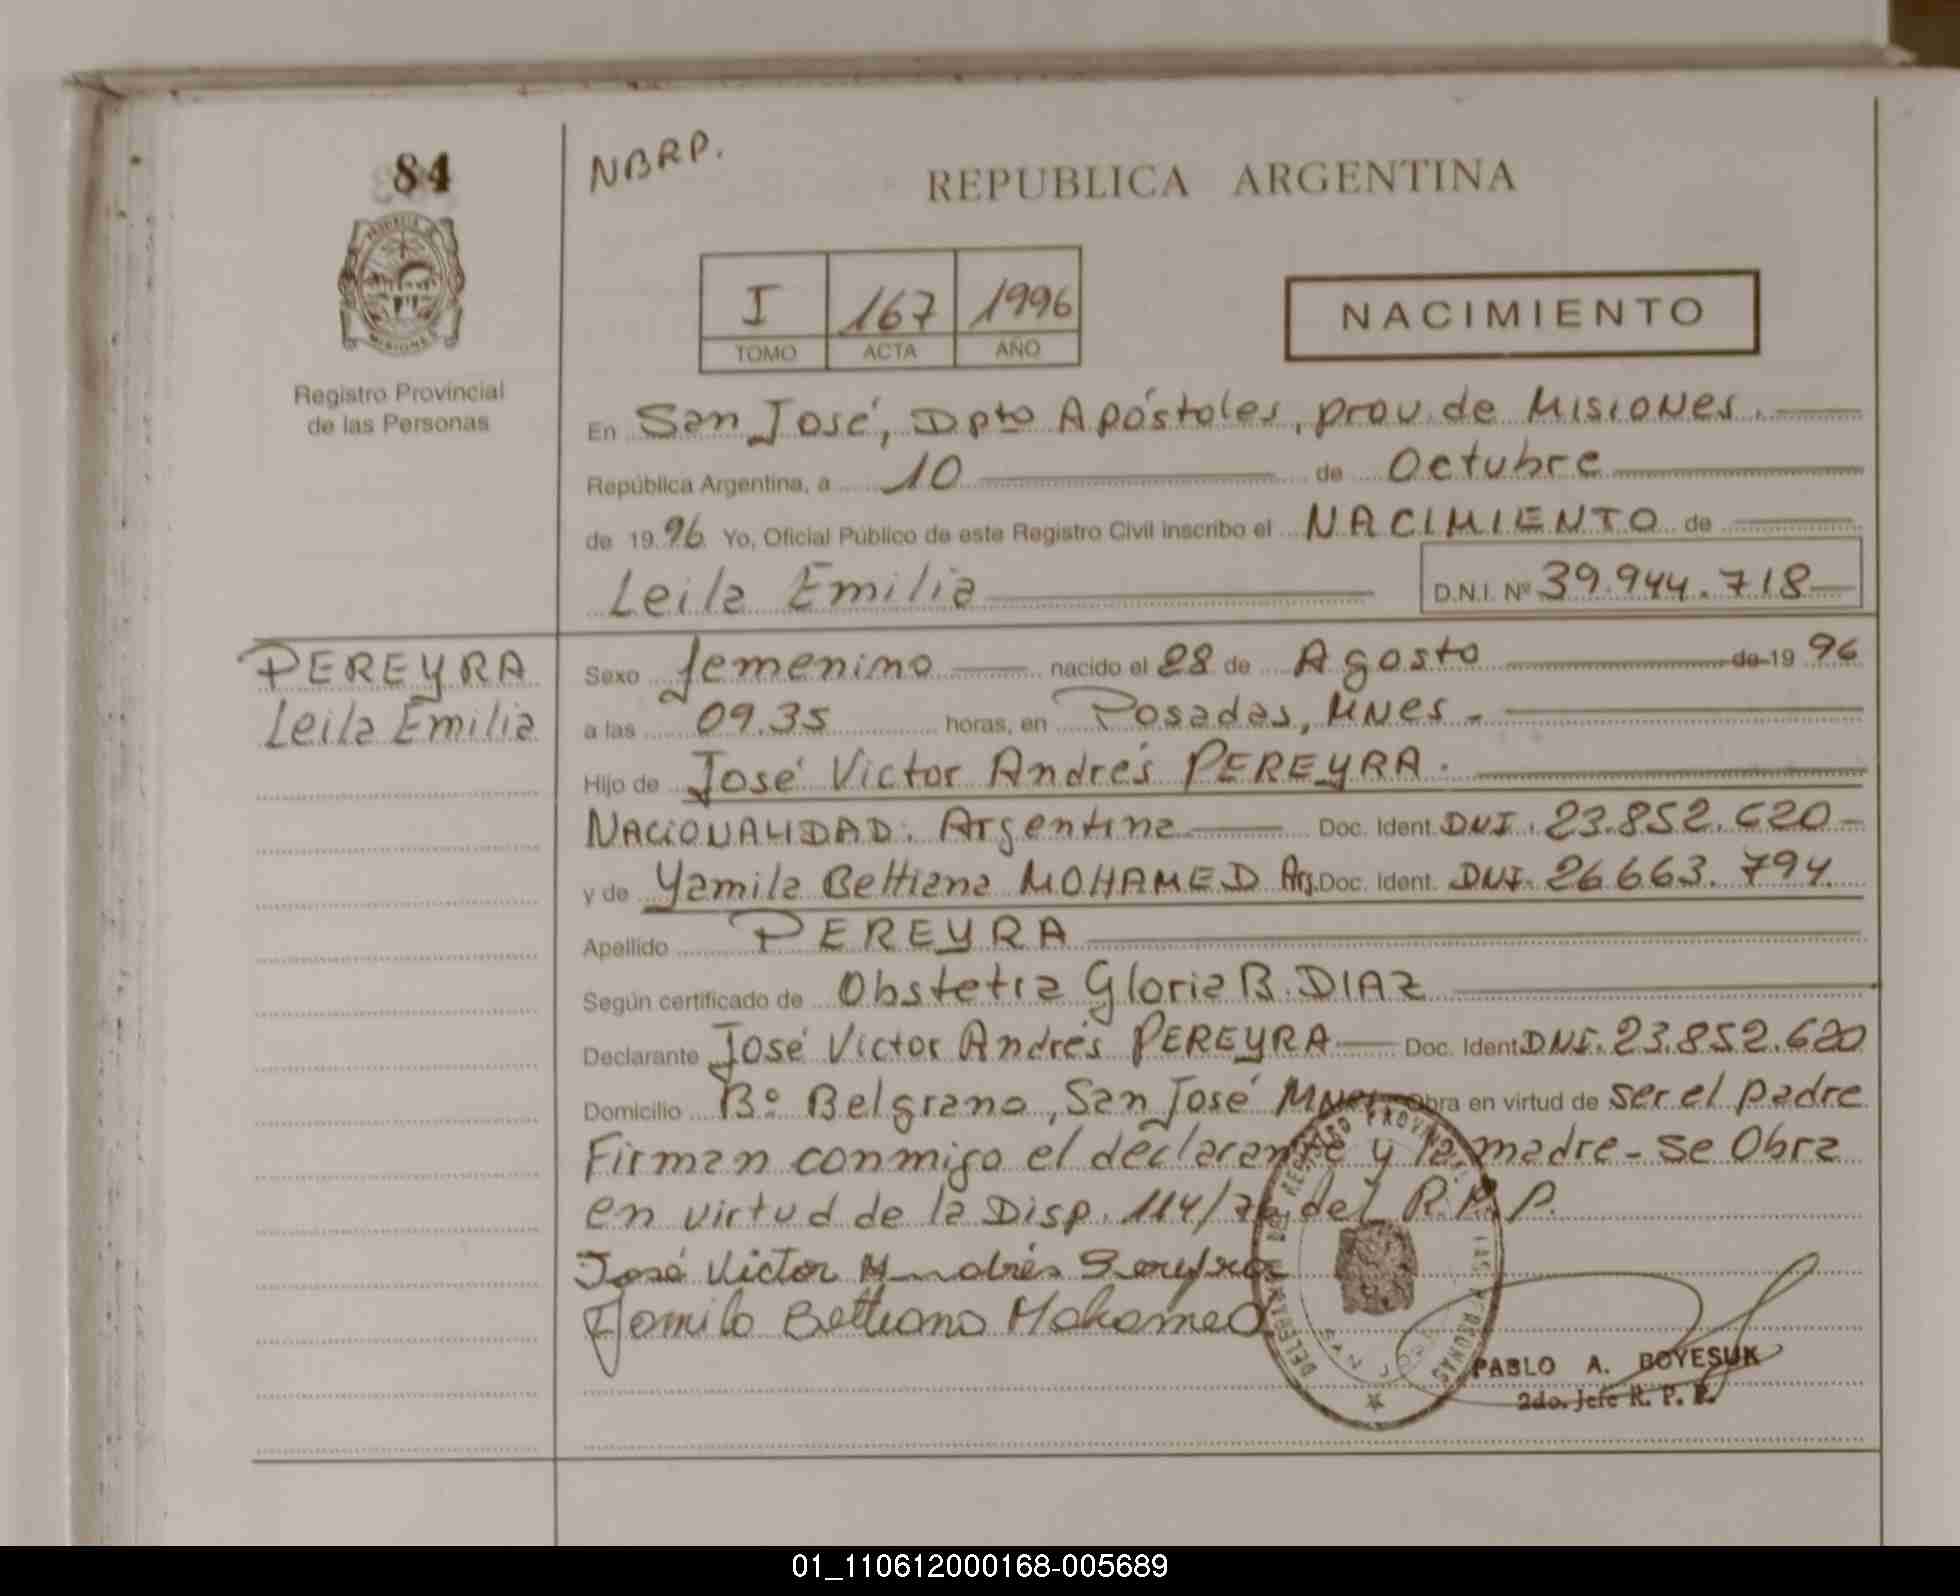 84
NBRP.
REPUBLICA ARGENTINA
PROVINCIA DE MISIONES
I 167 1996
TOMO ACTA AÑO
NACIMIENTO
Registro Provincial
de las Personas
En San José, Dpto Apóstoles, prov. de Misiones.
República Argentina, a 10 de Octubre
de 1996 Yo, Oficial Público de este Registro Civil inscribo el NACIMIENTO de
Leila Emilia D.N.I. Nº 39.944.718
PEREYRA
Leila Emilia
Sexo femenino nacido el 28 de Agosto de 19 96
a las 09.35 horas, en Posadas, MNes.
Hijo de José Victor Andrés PEREYRA.
NACIONALIDAD: Argentina Doc. Ident. DNI. 23.852.620
y de Yamila Bettiana MOHAMED Arg. Doc. Ident. DNI. 26.663.794.
Apellido PEREYRA
Según certificado de Obstetra Gloria B. DIAZ
Declarante José Victor Andrés PEREYRA Doc. Ident. DNI. 23.852.620
Domicilio Bº Belgrano, San José MNes Obra en virtud de ser el padre
Firman conmigo el declarante y la madre - se Obra
en virtud de la Disp. 114/76 del R.P.P.
José Victor Andrés Pereyra
Yamila Bettiana Mohamed
DELEGACION DE REGISTRO PROVINCIAL DE LAS PERSONAS
SAN JOSE
PABLO A. BOYESUK
2do. Jefe R. P. P.
01_110612000168-005689